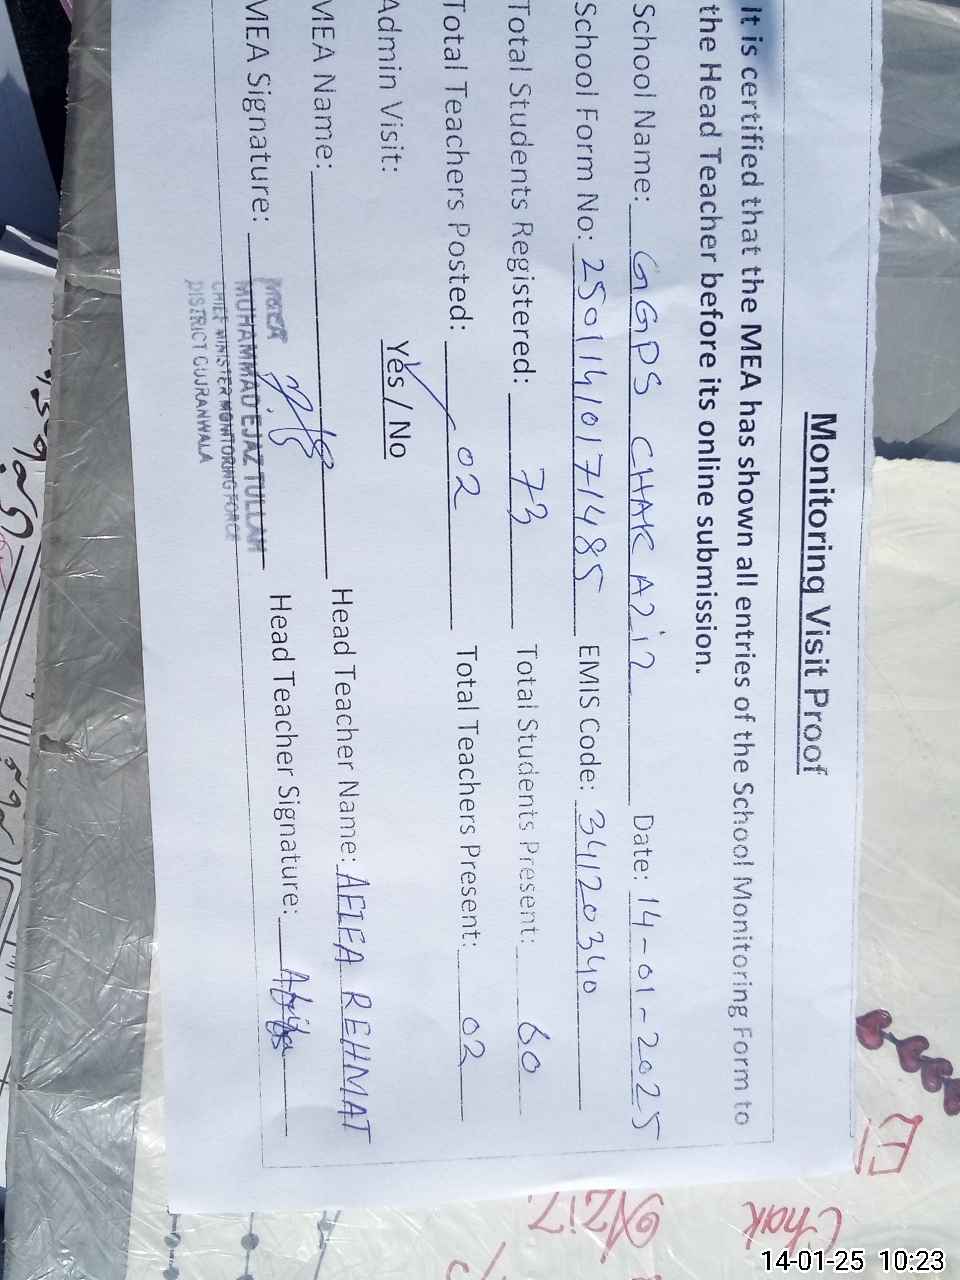 Monitoring Visit Proof
It is certified that the MEA has shown all entries of the School Monitoring Form to
the Head Teacher before its online submission.
School Name: GGPS CHAK AZiZ Date: 14-01-2025
School Form No: 25011410171485 EMIS Code: 34120340
Total Students Registered: 73 Total Students Present: 60
Total Teachers Posted: 02 Total Teachers Present: 02
Admin Visit: Yes / No
MEA Name: Head Teacher Name: AFIFA REHMAT
MEA Signature: Head Teacher Signature: Afifa
MUHAMMAD EJAZ TULLAH
CHIEF MINISTER MONITORING FORCE
DISTRICT GUJRANWALA
Chak Aziz
14-01-25 10:23